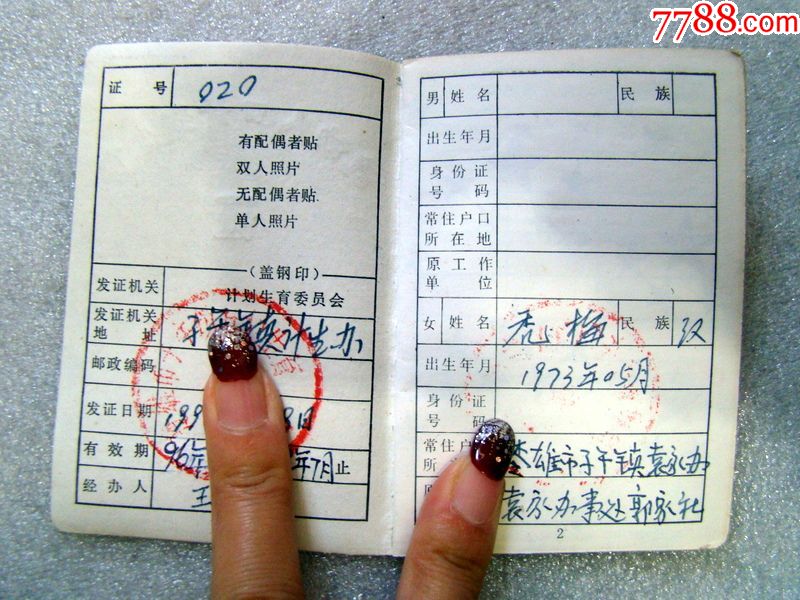 7788.com
证 号 020
有配偶者贴
双人照片
无配偶者贴.
单人照片
(盖钢印)
发证机关 计划生育委员会
发证机关 子午镇计生办
地 址
邮政编码
发证日期 199 日
有 效 期 96年 年7月止
经 办 人 王
2
男 姓 名 民 族
出生年月
身 份 证
号 码
常住户口
所 在 地
原 工 作
单 位
女 姓 名 梅 民 族 汉
出生年月 1973年05月
身 份 证
号
常住户 雄市子午镇袁家办
所
袁家办事处郭家社
2